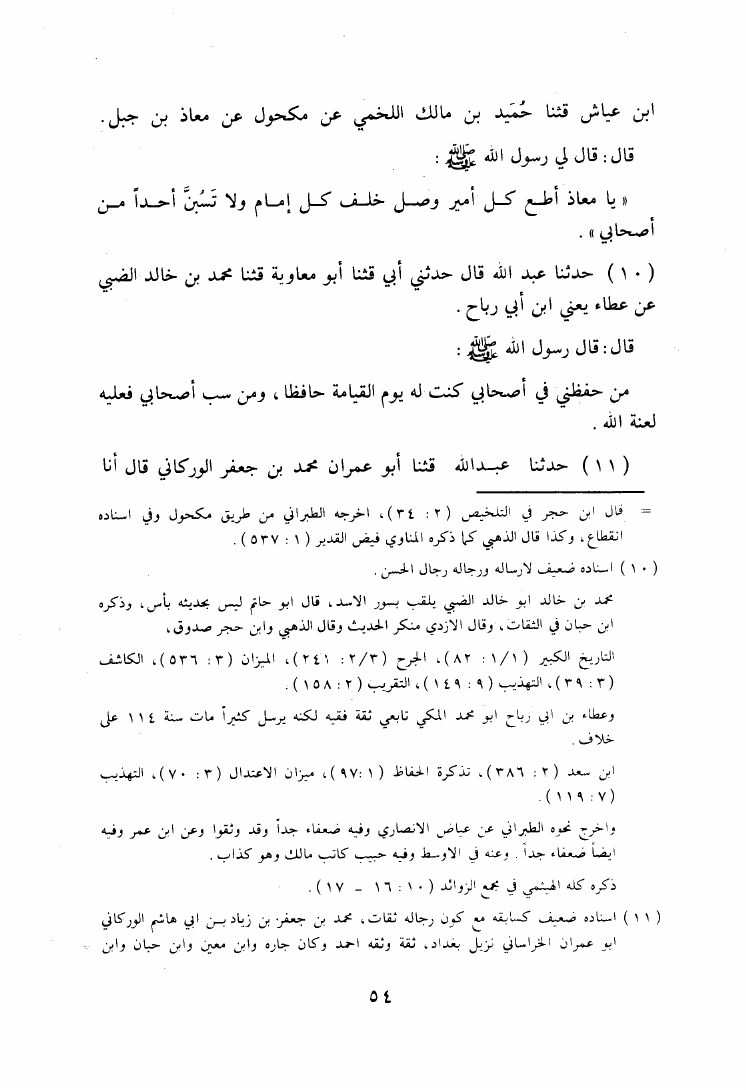 ابن عياش قثنا حُمَيد بن مالك اللخمي عن مكحول عن معاذ بن جبل.
قال: قال لي رسول الله ﷺ :
« يا معاذ أطع كل أمير وصل خلف كل إمام ولا تَسُبنَّ أحداً من
أصحابي » .
(١٠) حدثنا عبد الله قال حدثني أبي قثنا أبو معاوية قثنا محمد بن خالد الضبي
عن عطاء يعني ابن أبي رباح .
قال: قال رسول الله ﷺ :
من حفظني في أصحابي كنت له يوم القيامة حافظا ، ومن سب أصحابي فعليه
لعنة الله .
(١١) حدثنا عبدالله قثنا أبو عمران محمد بن جعفر الوركاني قال أنا
= قال ابن حجر في التلخيص (٢ : ٣٤)، اخرجه الطبراني من طريق مكحول وفي اسناده
انقطاع، وكذا قال الذهبي كما ذكره المناوي فيض القدير (١ : ٥٣٧).
(١٠) اسناده ضعيف لارساله ورجاله رجال الحسن.
محمد بن خالد ابو خالد الضبي يلقب بسور الاسد، قال ابو حاتم ليس بحديثه بأس، وذكره
ابن حبان في الثقات، وقال الازدي منكر الحديث وقال الذهبي وابن حجر صدوق،
التاريخ الكبير (١/١ : ٨٢)، الجرح (٢/٣ : ٢٤١)، الميزان (٣ : ٥٣٦)، الكاشف
(٣ : ٣٩)، التهذيب (٩ : ١٤٩)، التقريب (٢ : ١٥٨).
وعطاء بن ابي رباح ابو محمد المكي تابعي ثقة فقيه لكنه يرسل كثيراً مات سنة ١١٤ على
خلاف.
ابن سعد (٢ : ٣٨٦)، تذكرة الحفاظ (١ :٩٧)، ميزان الاعتدال (٣ : ٧٠)، التهذيب
(٧ : ١١٩).
واخرج نحوه الطبراني عن عياض الانصاري وفيه ضعفاء جداً وقد وثقوا وعن ابن عمر وفيه
ايضاً ضعفاء جداً. وعنه في الاوسط وفيه حبيب كاتب مالك وهو كذاب.
ذكره كله الهيثمي في مجمع الزوائد (١٠ : ١٦ - ١٧).
(١١) اسناده ضعيف كسابقه مع كون رجاله ثقات، محمد بن جعفر بن زياد بن ابي هاشم الوركاني
ابو عمران الخراساني نزيل بغداد، ثقة وثقه احمد وكان جاره وابن معين وابن حبان وابن
٥٤